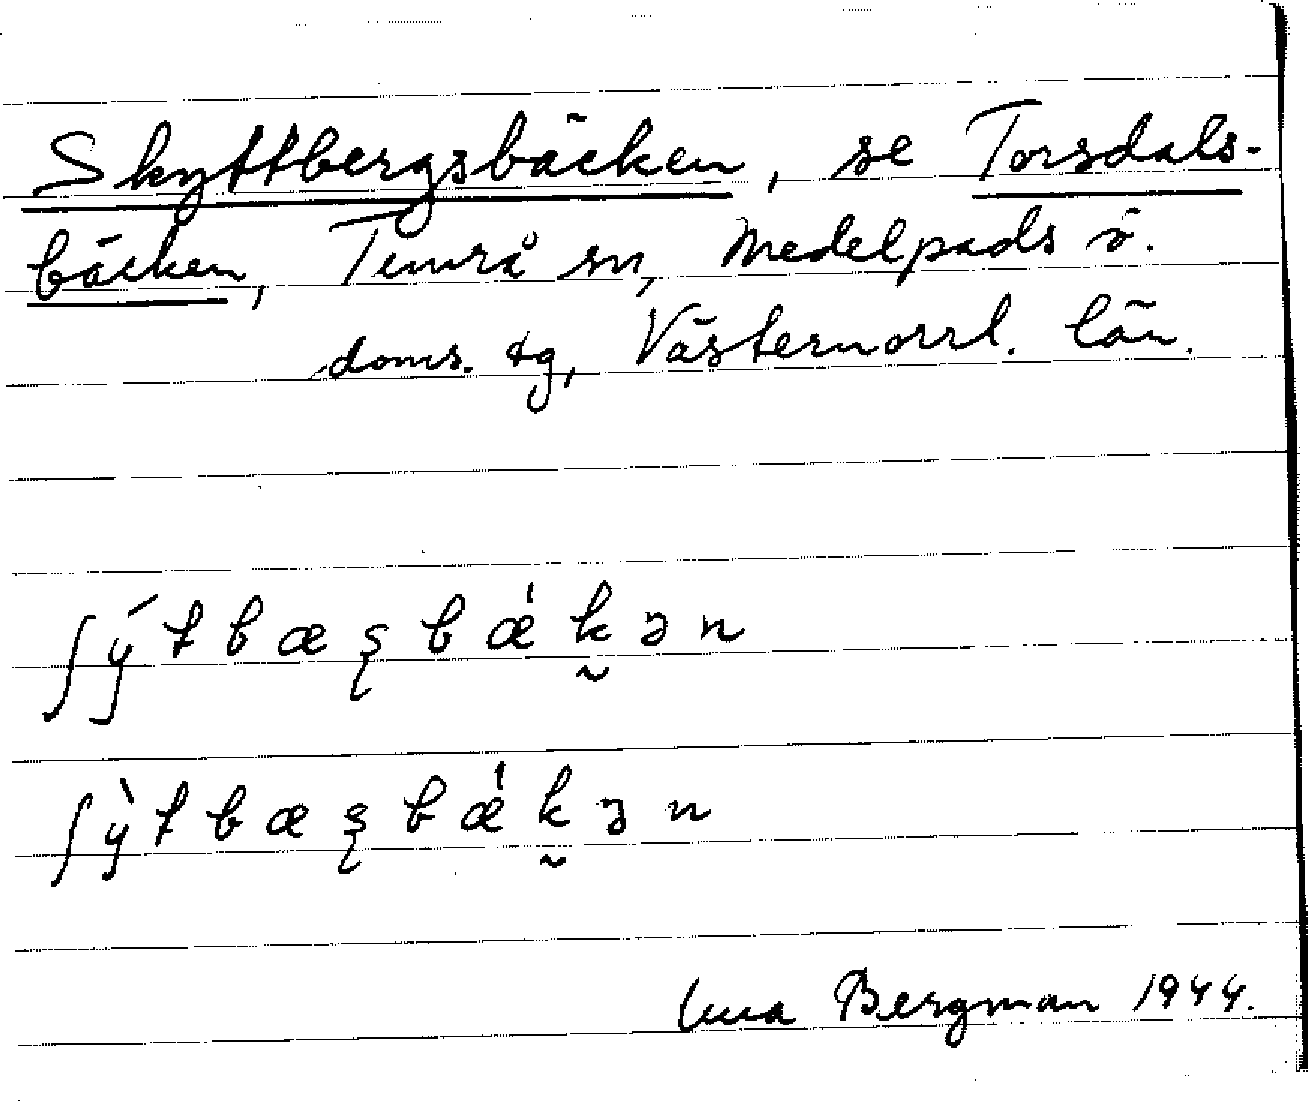 Skyttbergsbäcken, se Torsdals-
bäcken, Timrå sn, Medelpads ö.
doms. tg, Västernorrl. län.
ʃý t b æ ʂ b ǽ k̰ ə n
ʃỳ t b æ ʂ b ǽ k̰ ə n
Bergman 1944.